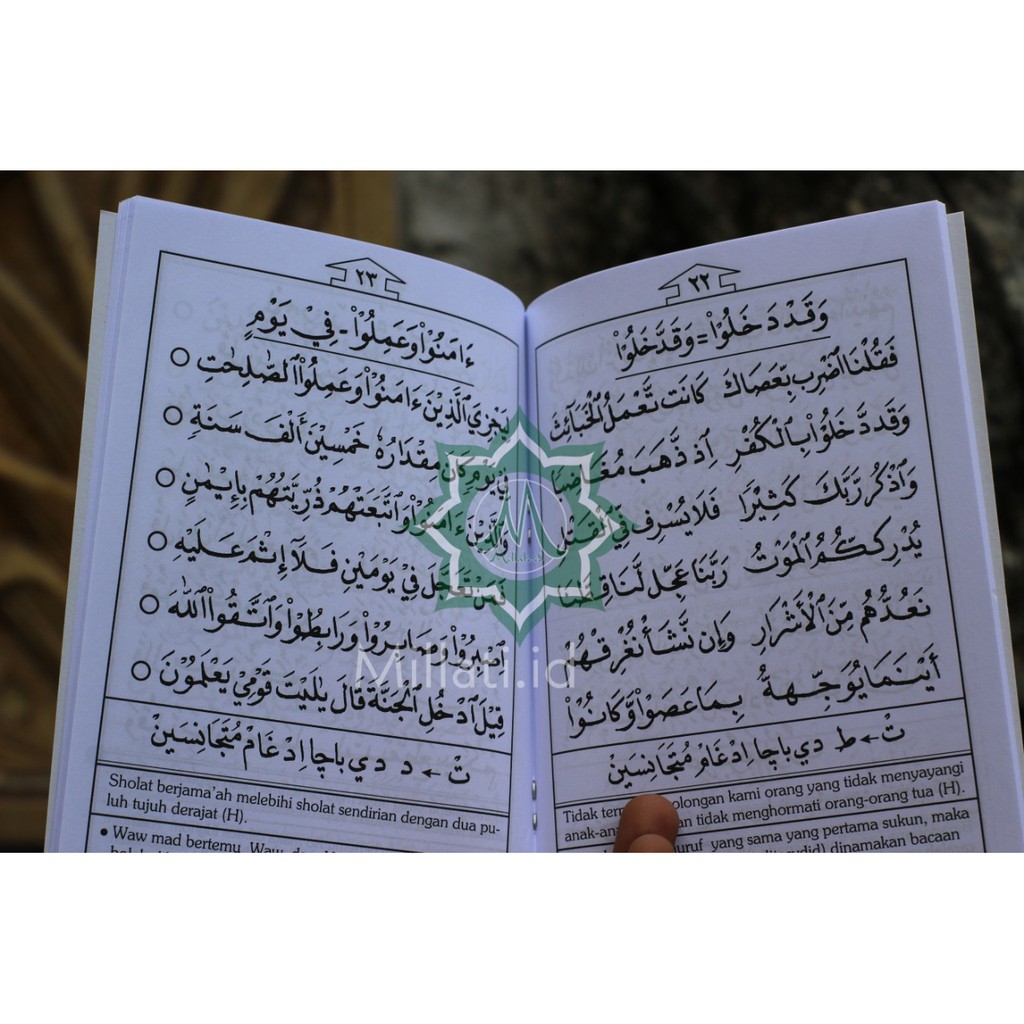 ٢٢
وَقَدْ دَخَلُوْا = وَقَدَّخَلُوْا
فَقُلْنَا اضْرِب بِّعَصَاكَ كَانَت تَّعْمَلُ الْخَبَآئِثَ
وَقَد دَّخَلُوْا بِالْكُفْرِ اِذ ذَّهَبَ مُغَاضِبًا
وَاذْكُر رَّبَّكَ كَثِيْرًا فَلَا يُسْرِف فِّي الْقَتْلِ
يُدْرِككُّمُ الْمَوْتُ رَبَّنَا عَجِّل لَّنَا قِطَّنَا
نَعُدُّهُم مِّنَ الْأَشْرَارِ وَإِن نَّشَأْ نُغْرِقْهُمْ
أَيْنَمَا يُوَجِّههُّ بِمَا عَصَوْا وَّكَانُوْا
تْ ← ط دي باچا اِدْغَامْ مُتَجَانِسَيْنْ
Tidak olongan kami orang yang tidak menyayangi
anak-an an tidak menghormati orang-orang tua (H).
uruf yang sama yang pertama sukun, maka
dinamakan bacaan
٢٣
ءَامَنُوْا وَعَمِلُوْا - فِيْ يَوْمٍ
يَجْزِيَ الَّذِيْنَ ءَامَنُوْا وَعَمِلُوا الصّٰلِحٰتِ
فِيْ يَوْمٍ كَانَ مِقْدَارُهٗ خَمْسِيْنَ أَلْفَ سَنَةٍ
وَالَّذِيْنَ ءَامَنُوْا وَاتَّبَعَتْهُمْ ذُرِّيَّتُهُمْ بِإِيْمٰنٍ
فَمَنْ تَعَجَّلَ فِيْ يَوْمَيْنِ فَلَآ إِثْمَ عَلَيْهِ
اصْبِرُوْا وَصَابِرُوْا وَرَابِطُوْا وَاتَّقُوا اللّٰهَ
قِيْلَ ادْخُلِ الْجَنَّةَ قَالَ يٰلَيْتَ قَوْمِيْ يَعْلَمُوْنَ
تْ ← د دي باچا اِدْغَامْ مُتَجَانِسَيْنْ
Sholat berjama'ah melebihi sholat sendirian dengan dua pu-
luh tujuh derajat (H).
• Waw mad bertemu Waw,
Millati.id